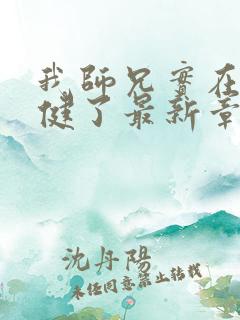 我師兄實在
健了最新章
沈丹陽
未任同意禁止转载